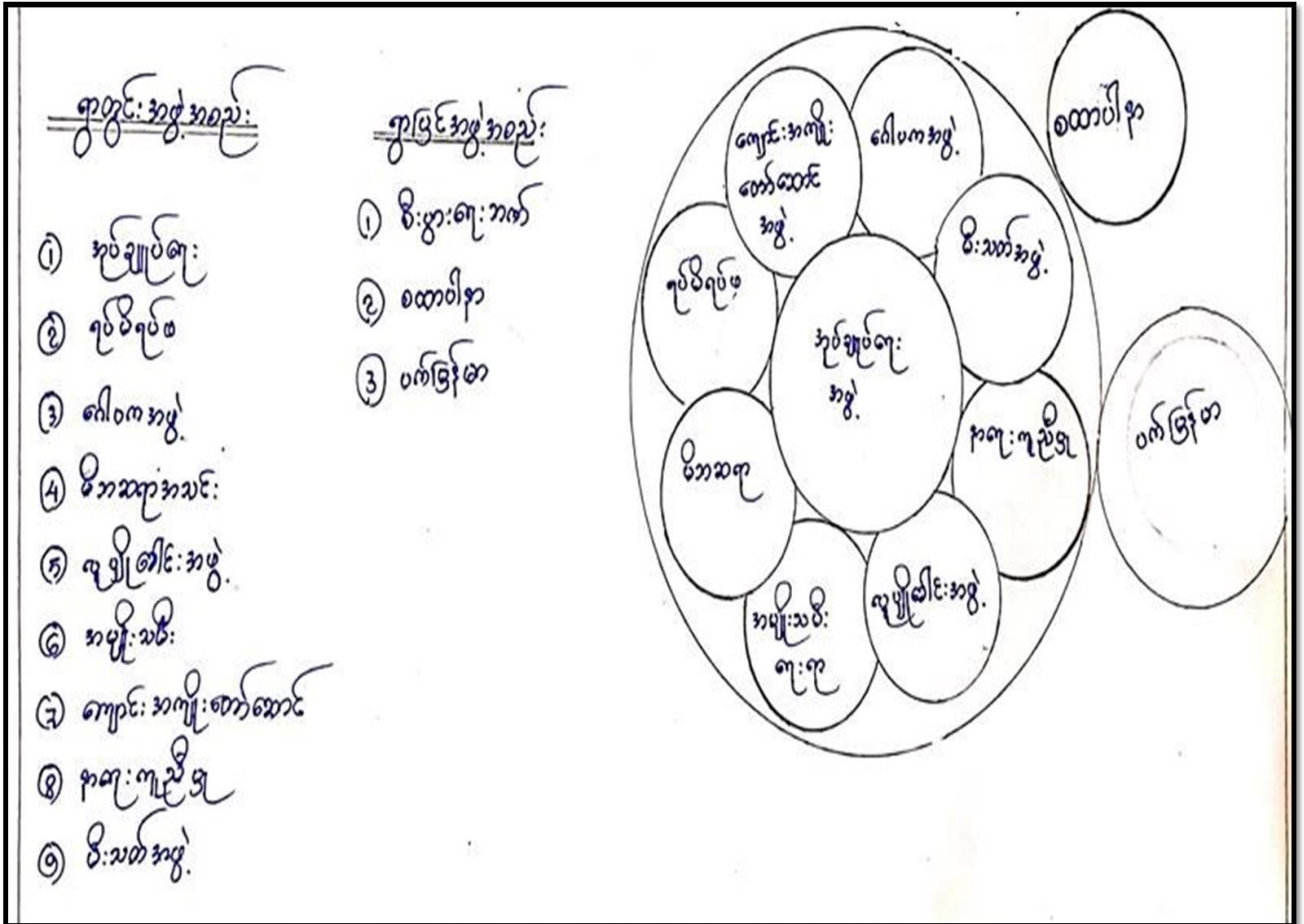 ရွာတွင်းအဖွဲ့အစည်း
① အုပ်ချုပ်ရေး
② ရပ်မိရပ်ဖ
③ ဂေါပကအဖွဲ့
④ မိဘဆရာအသင်း
⑤ လူပျိုခေါင်းအဖွဲ့
⑥ အမျိုးသမီး
⑦ ကျောင်းအကျိုးတော်ဆောင်
⑧ နာရေးကူညီမှု
⑨ မီးသတ်အဖွဲ့
ရွာပြင်အဖွဲ့အစည်း
① စီးပွားရေးဘဏ်
② စထာပါနာ
③ ပက်မြန်မာ
ကျောင်းအကျိုး
တော်ဆောင်
အဖွဲ့
ဂေါပကအဖွဲ့
မီးသတ်အဖွဲ့
ရပ်မိရပ်ဖ
အုပ်ချုပ်ရေး
အဖွဲ့
နာရေးကူညီမှု
မိဘဆရာ
အမျိုးသမီး
ရေးရာ
လူပျိုခေါင်းအဖွဲ့
စထာပါနာ
ပက်မြန်မာ